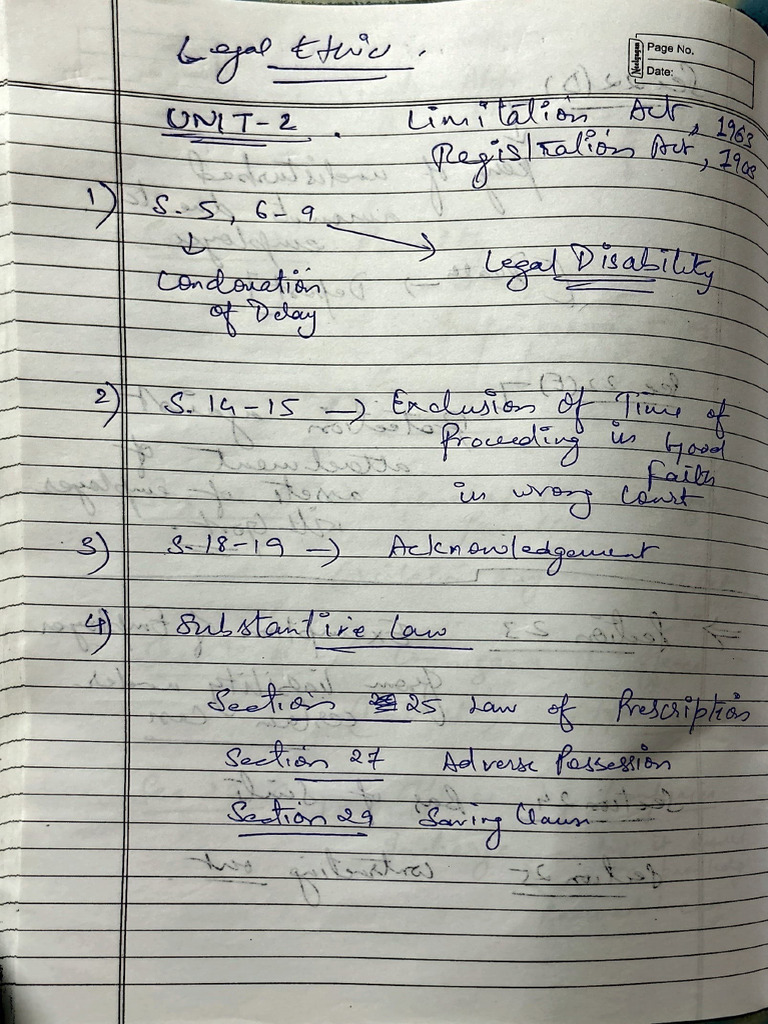 Legal Ethic.
Page No.
Date:
Neelgagan
UNIT-2 . Limitation Act, 1963
Registration Act, 1908
1) S. 5, 6-9
Legal Disability
Condonation
of Delay
2) S. 14-15 → Exclusion of Time of
Proceeding in good
faith
in wrong court
3) S. 18-19 → Acknowledgement
4) Substantive Law
Section 25 Law of Prescription
Section 27 Adverse Possession
Section 29 Saving Clause